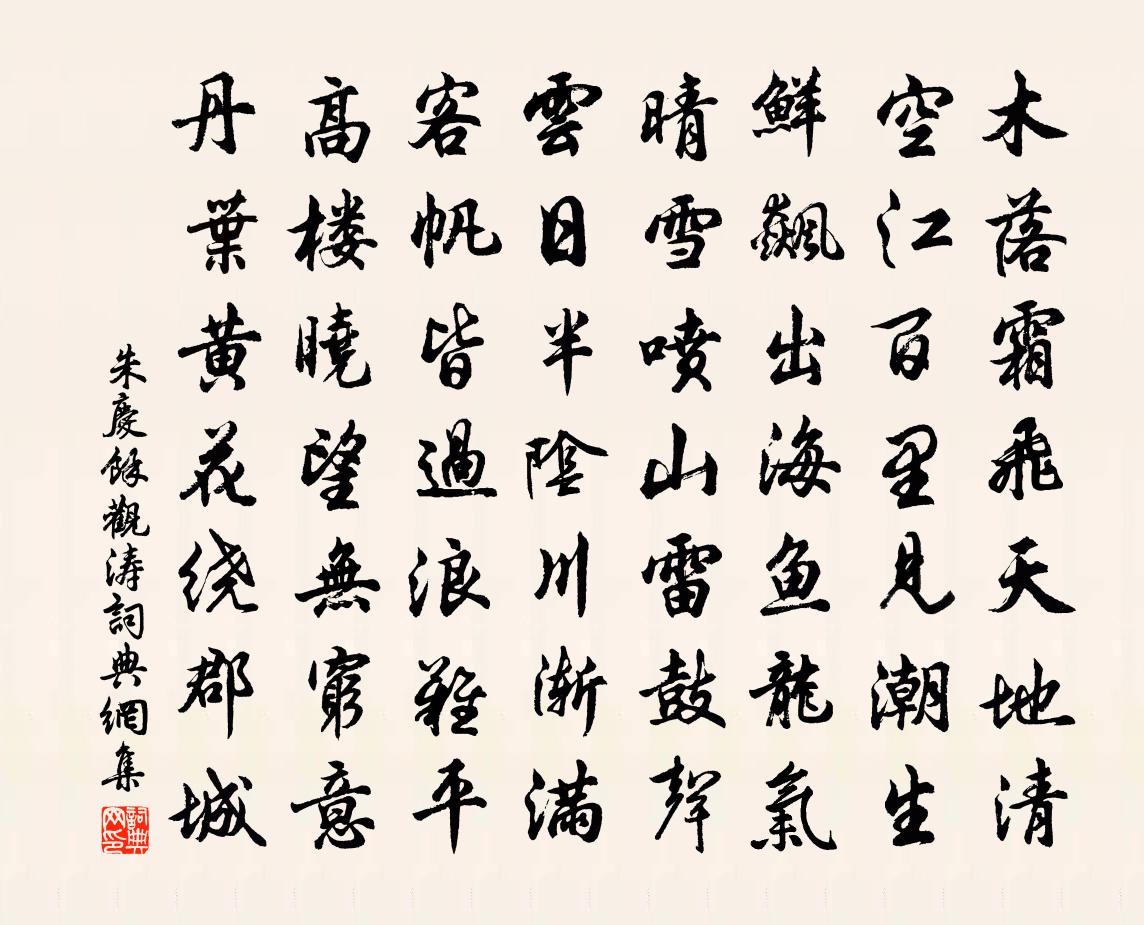 木落霜飛天地清
空江百里見潮生
鮮飆出海魚龍氣
晴雪噴山雷鼓聲
雲日半陰川漸滿
客帆皆過浪難平
高樓曉望無窮意
丹葉黃花繞郡城
朱慶餘觀濤詞典網集
詞典网印